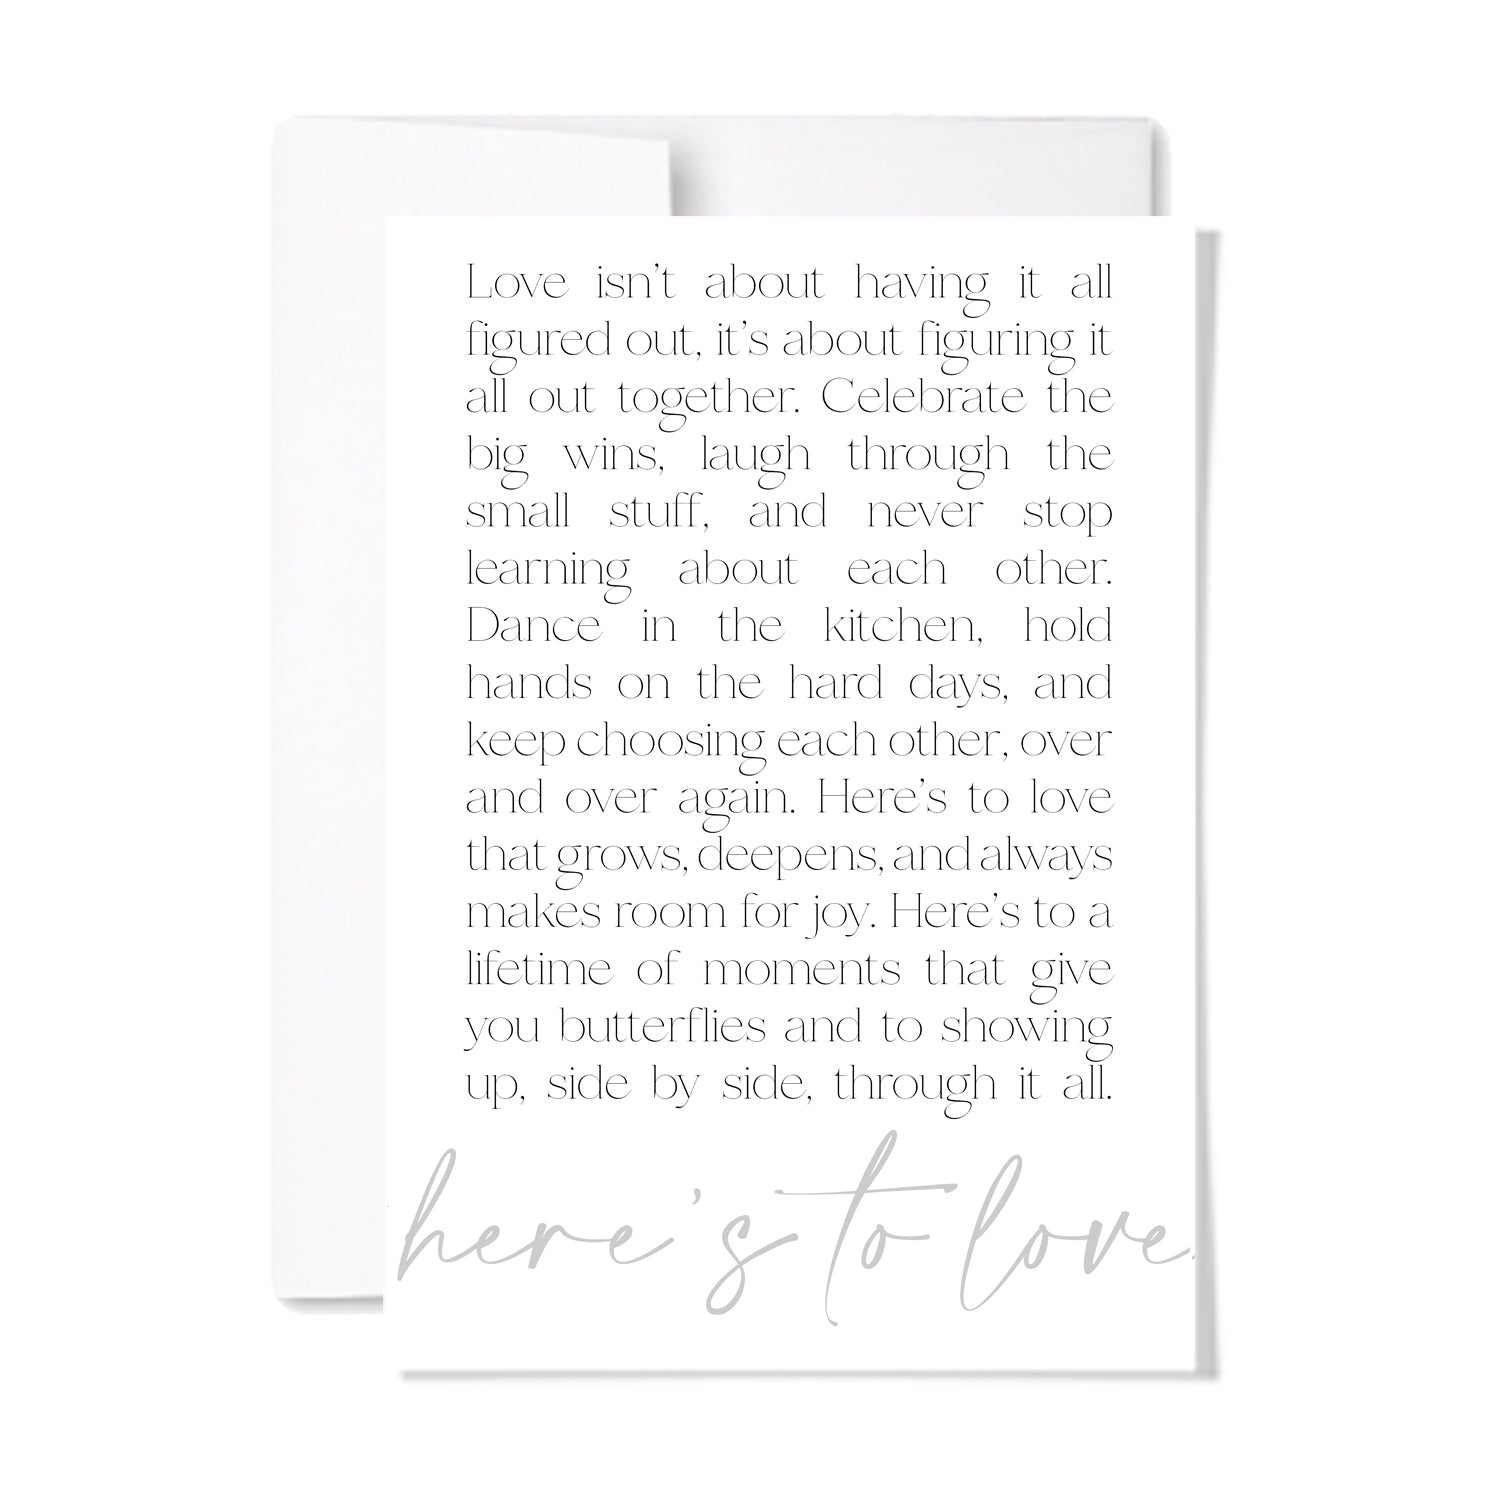 Love isn't about having it all
figured out, it's about figuring it
all out together. Celebrate the
big wins, laugh through the
small stuff, and never stop
learning about each other.
Dance in the kitchen, hold
hands on the hard days, and
keep choosing each other, over
and over again. Here's to love
that grows, deepens, and always
makes room for joy. Here's to a
lifetime of moments that give
you butterflies and to showing
up, side by side, through it all.
here's to love.